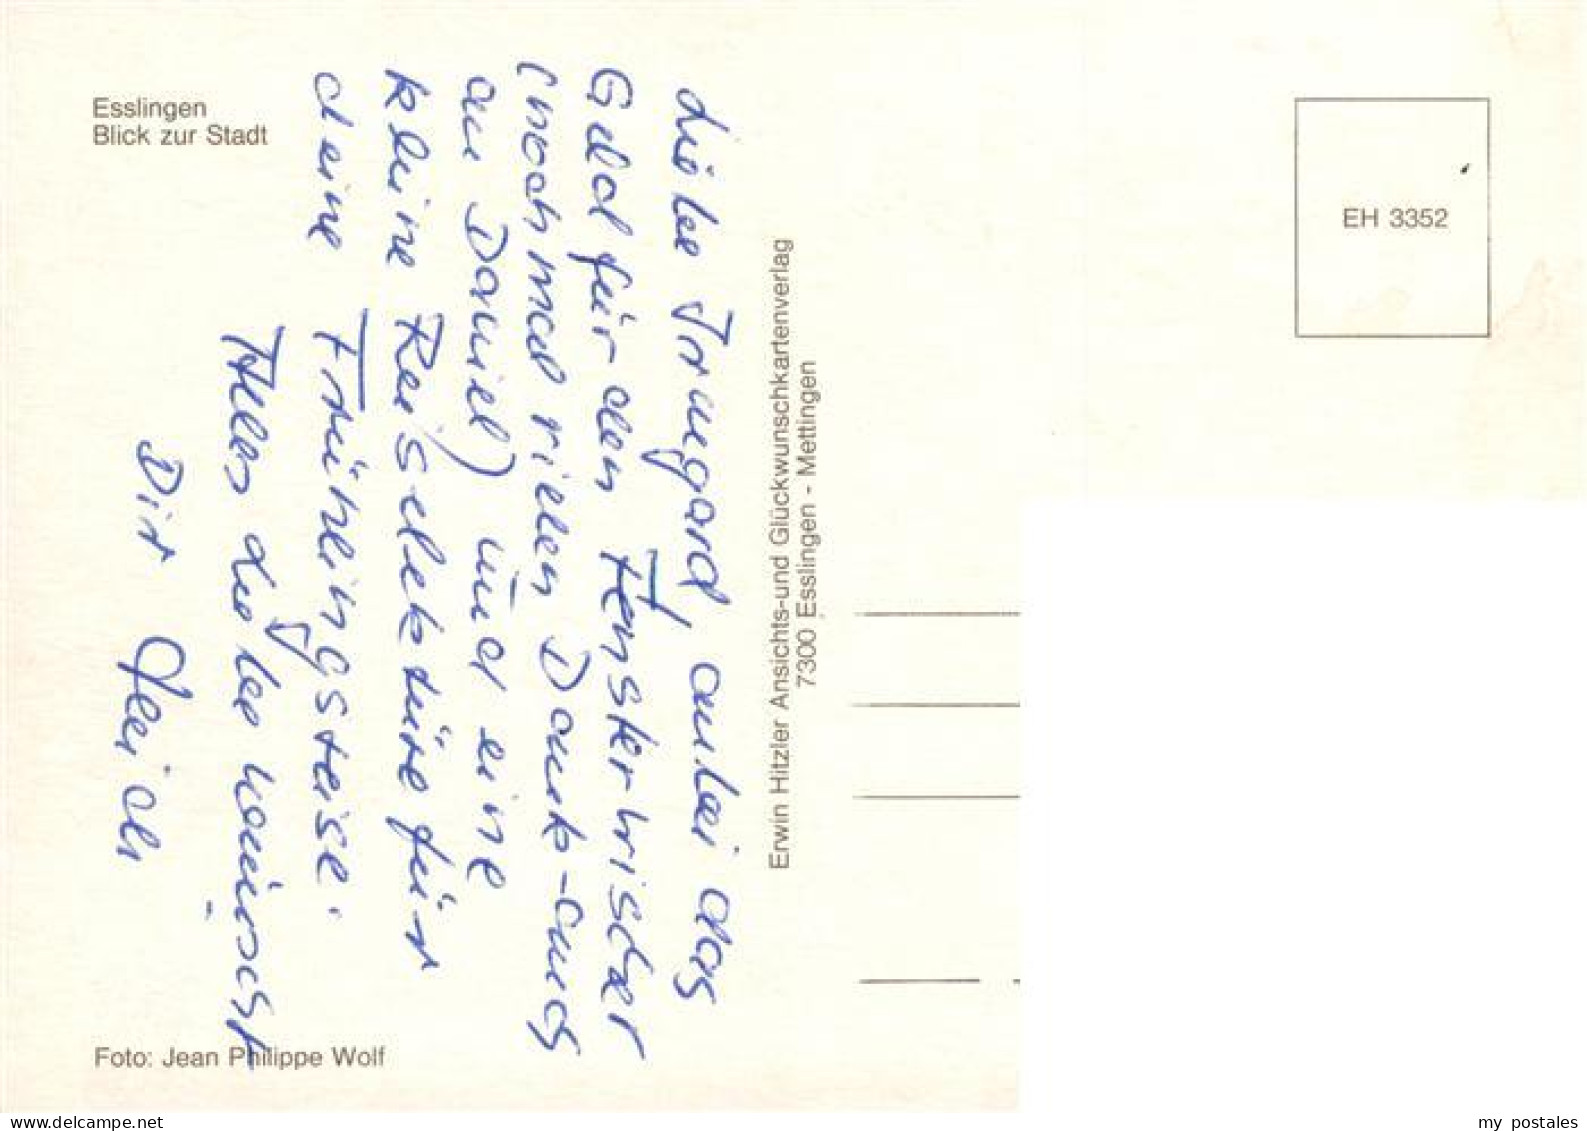 Esslingen
Blick zur Stadt
Liebe Irmgard, anbei das
Geld für den Fensterwischer
(nochmal vielen Dank - auch
an Daniel) und eine
kleine Reiselektüre für
deine Frühlingsreise.
Alles Liebe wünscht
Dir
Erwin Hitzler Ansichts-und Glückwunschkartenverlag
7300 Esslingen - Mettingen
EH 3352
Foto: Jean Philippe Wolf
my postales